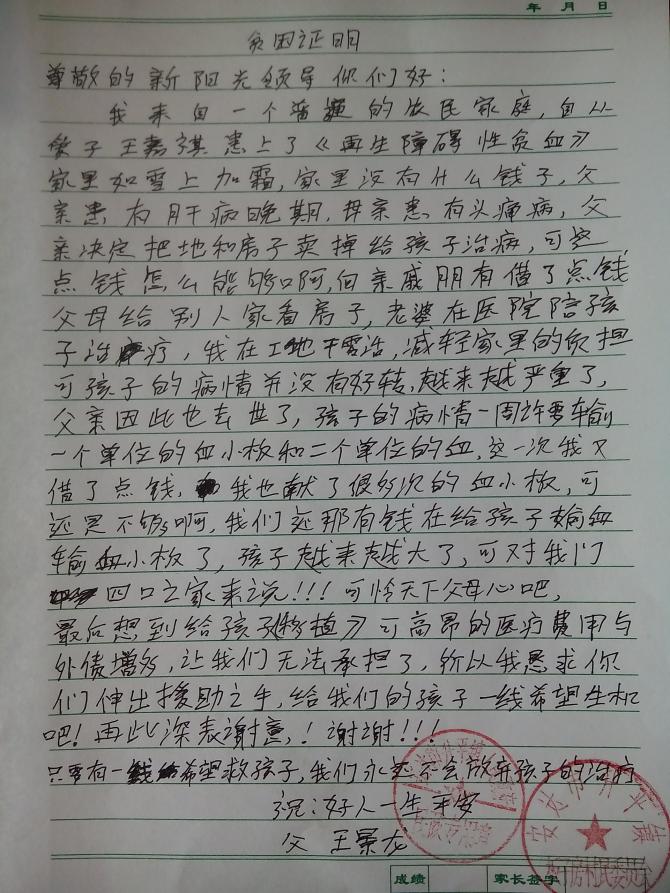 年 月 日
贫困证明
尊敬的新阳光领导你们好：
我来自一个普通的农民家庭，自从
孩子王嘉祺患上了《再生障碍性贫血》
家里如雪上加霜，家里没有什么钱子，父
亲患有肝病晚期，母亲患有头痛病，父
亲决定把地和房子卖掉给孩子治病，可这
点钱怎么能够啊，向亲戚朋有借了点钱
父母给别人家看房子，老婆在医院陪孩
子治疗，我在工地干零活，减轻家里的负担
可孩子的病情并没有好转，越来越严重了，
父亲因此也去世了，孩子的病情一周许要输
一个单位的血小板和二个单位的血，这一次我又
借了点钱，我也献了很多次的血小板，可
还是不够啊，我们还那有钱在给孩子输血
输血小板了，孩子越来越大了，可对我们
四口之家来说!!! 可怜天下父母心吧，
最后想到给孩子《移植》可高昂的医疗费用与
外债增多，让我们无法承担了，所以我恳求你
们伸出援助之手，给我们的孩子一线希望生机
吧! 再此深表谢意，! 谢谢!!!
只要有一线希望救孩子，我们永远不会放弃孩子的治疗
祝：好人一生平安
父 王景龙
成绩 家长签字
安达市 升平镇